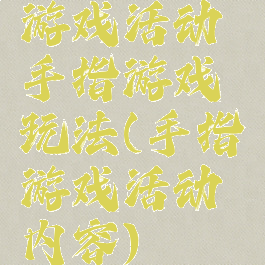 游戏活动
手指游戏
玩法(手指
游戏活动
内容)